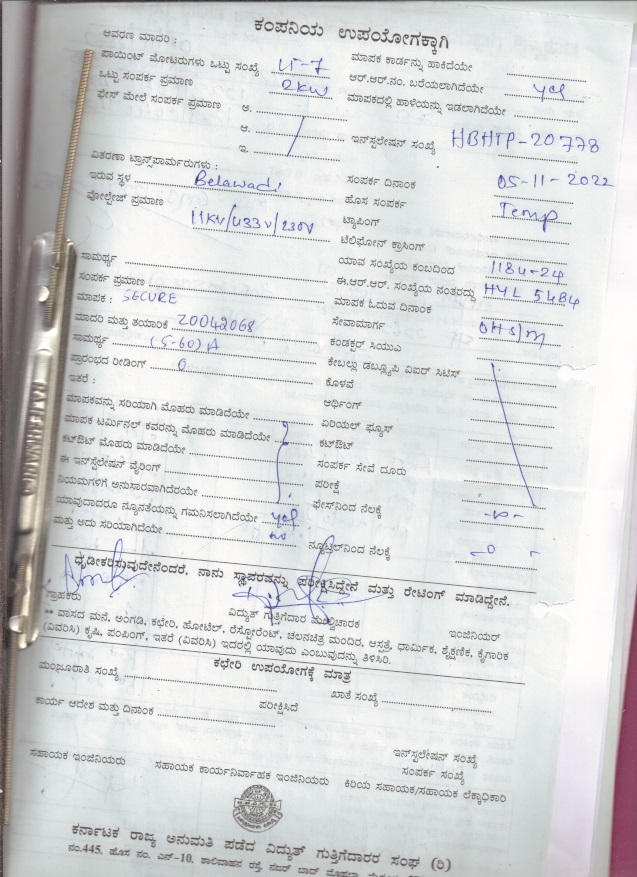 ಕಂಪನಿಯ ಉಪಯೋಗಕ್ಕಾಗಿ
ಆವರಣ ಮಾದರಿ :
ಮಾಪಕ ಕಾರ್ಡನ್ನು ಹಾಕಿದೆಯೇ
ಪಾಯಿಂಟ್ ಮೋಟರುಗಳು ಒಟ್ಟು ಸಂಖ್ಯೆ
ಆರ್.ಆರ್.ನಂ. ಬರೆಯಲಾಗಿದೆಯೇ yes
ಒಟ್ಟು ಸಂಪರ್ಕ ಪ್ರಮಾಣ 2KW
ಮಾಪಕದಲ್ಲಿ ಹಾಳೆಯನ್ನು ಇಡಲಾಗಿದೆಯೇ
ಫೇಸ್ ಮೇಲೆ ಸಂಪರ್ಕ ಪ್ರಮಾಣ ಅ.
ಆ.
ಇನ್‌ಸ್ಟಲೇಷನ್ ಸಂಖ್ಯೆ HBHTP-20778
ಇ.
ವಿತರಣಾ ಟ್ರಾನ್ಸ್‌ಪಾರ್ಮರುಗಳು :
ಸಂಪರ್ಕ ದಿನಾಂಕ 05-11-2022
ಇರುವ ಸ್ಥಳ Belawadi
ಹೊಸ ಸಂಪರ್ಕ Temp
ವೋಲ್ಟೇಜ್ ಪ್ರಮಾಣ 11KV/433V/230V
ಟ್ಯಾಪಿಂಗ್
ಟೆಲಿಫೋನ್ ಕ್ರಾಸಿಂಗ್
ಸಾಮರ್ಥ್ಯ
ಯಾವ ಸಂಖ್ಯೆಯ ಕಂಬದಿಂದ 1184-24
ಸಂಪರ್ಕ ಪ್ರಮಾಣ
ಈ.ಆರ್.ಆರ್. ಸಂಖ್ಯೆಯ ನಂತರದ್ದು HYL 5484
ಮಾಪಕ : SECURE
ಮಾಪಕ ಓದುವ ದಿನಾಂಕ
ಮಾದರಿ ಮತ್ತು ತಯಾರಿಕೆ 20042068
ಸೇವಾಮಾರ್ಗ OHS/m
ಸಾಮರ್ಥ್ಯ (5-60) A
ಕಂಡಕ್ಟರ್ ಸಿಯುಎ
ಪ್ರಾರಂಭದ ರೀಡಿಂಗ್ 0
ಕೇಬಲ್ಲು ಡಬ್ಲ್ಯೂಪಿ ವಿಐರ್ ಸಿಟಿಸ್
ಇತರೆ :
ಕೊಳವೆ
ಆರ್ಥಿಂಗ್
ಮಾಪಕವನ್ನು ಸರಿಯಾಗಿ ಮೊಹರು ಮಾಡಿದೆಯೇ
ಏರಿಯಲ್ ಫ್ಯೂಸ್
ಮಾಪಕ ಟರ್ಮಿನಲ್ ಕವರನ್ನು ಮೊಹರು ಮಾಡಿದೆಯೇ
ಕಟ್‌ಔಟ್
ಕಟ್‌ಔಟ್ ಮೊಹರು ಮಾಡಿದೆಯೇ
ಸಂಪರ್ಕ ಸೇವೆ ದೂರು
ಈ ಇನ್‌ಸ್ಟಲೇಷನ್ ವೈರಿಂಗ್
ಪರೀಕ್ಷೆ
ನಿಯಮಗಳಿಗೆ ಅನುಸಾರವಾಗಿದೆಯೇ
ಫೇಸ್‌ನಿಂದ ನೆಲಕ್ಕೆ
ಯಾವುದಾದರೂ ನ್ಯೂನತೆಯನ್ನು ಗಮನಿಸಲಾಗಿದೆಯೇ yes
ಮತ್ತು ಅದು ಸರಿಯಾಗಿದೆಯೇ
ನ್ಯೂಟ್ರಲ್‌ನಿಂದ ನೆಲಕ್ಕೆ -0-
ಧೃಡೀಕರಿಸುವುದೇನೆಂದರೆ, ನಾನು ಸ್ಥಾವರವನ್ನು ಪರೀಕ್ಷಿಸಿದ್ದೇನೆ ಮತ್ತು ರೇಟಿಂಗ್ ಮಾಡಿದ್ದೇನೆ.
ಗ್ರಾಹಕರು
ವಿದ್ಯುತ್ ಗುತ್ತಿಗೆದಾರ ಮೇಲ್ವಿಚಾರಕ
ಇಂಜಿನಿಯರ್
** ವಾಸದ ಮನೆ, ಅಂಗಡಿ, ಕಛೇರಿ, ಹೋಟೆಲ್, ರೆಸ್ಟೋರೆಂಟ್, ಚಲನಚಿತ್ರ ಮಂದಿರ, ಆಸ್ಪತ್ರೆ, ಧಾರ್ಮಿಕ, ಶೈಕ್ಷಣಿಕ, ಕೈಗಾರಿಕ
(ವಿವರಿಸಿ) ಕೃಷಿ, ಪಂಪಿಂಗ್, ಇತರೆ (ವಿವರಿಸಿ) ಇದರಲ್ಲಿ ಯಾವುದು ಎಂಬುವುದನ್ನು ತಿಳಿಸಿರಿ.
ಕಛೇರಿ ಉಪಯೋಗಕ್ಕೆ ಮಾತ್ರ
ಮಂಜೂರಾತಿ ಸಂಖ್ಯೆ
ಖಾತೆ ಸಂಖ್ಯೆ
ಕಾರ್ಯ ಆದೇಶ ಮತ್ತು ದಿನಾಂಕ
ಪರೀಕ್ಷಿಸಿದೆ
ಇನ್‌ಸ್ಟಲೇಷನ್ ಸಂಖ್ಯೆ
ಸಂಪರ್ಕ ಸಂಖ್ಯೆ
ಸಹಾಯಕ ಇಂಜಿನಿಯರು
ಸಹಾಯಕ ಕಾರ್ಯನಿರ್ವಾಹಕ ಇಂಜಿನಿಯರು
ಕಿರಿಯ ಸಹಾಯಕ/ಸಹಾಯಕ ಲೆಕ್ಕಾಧಿಕಾರಿ
ಕರ್ನಾಟಕ ರಾಜ್ಯ ಅನುಮತಿ ಪಡೆದ ವಿದ್ಯುತ್ ಗುತ್ತಿಗೆದಾರರ ಸಂಘ (ರಿ)
ನಂ.445, ಹೊಸ ನಂ. ಎನ್-10, ಶಾಲಿವಾಹನ ರಸ್ತೆ, ನಜರ್ ಬಾದ್